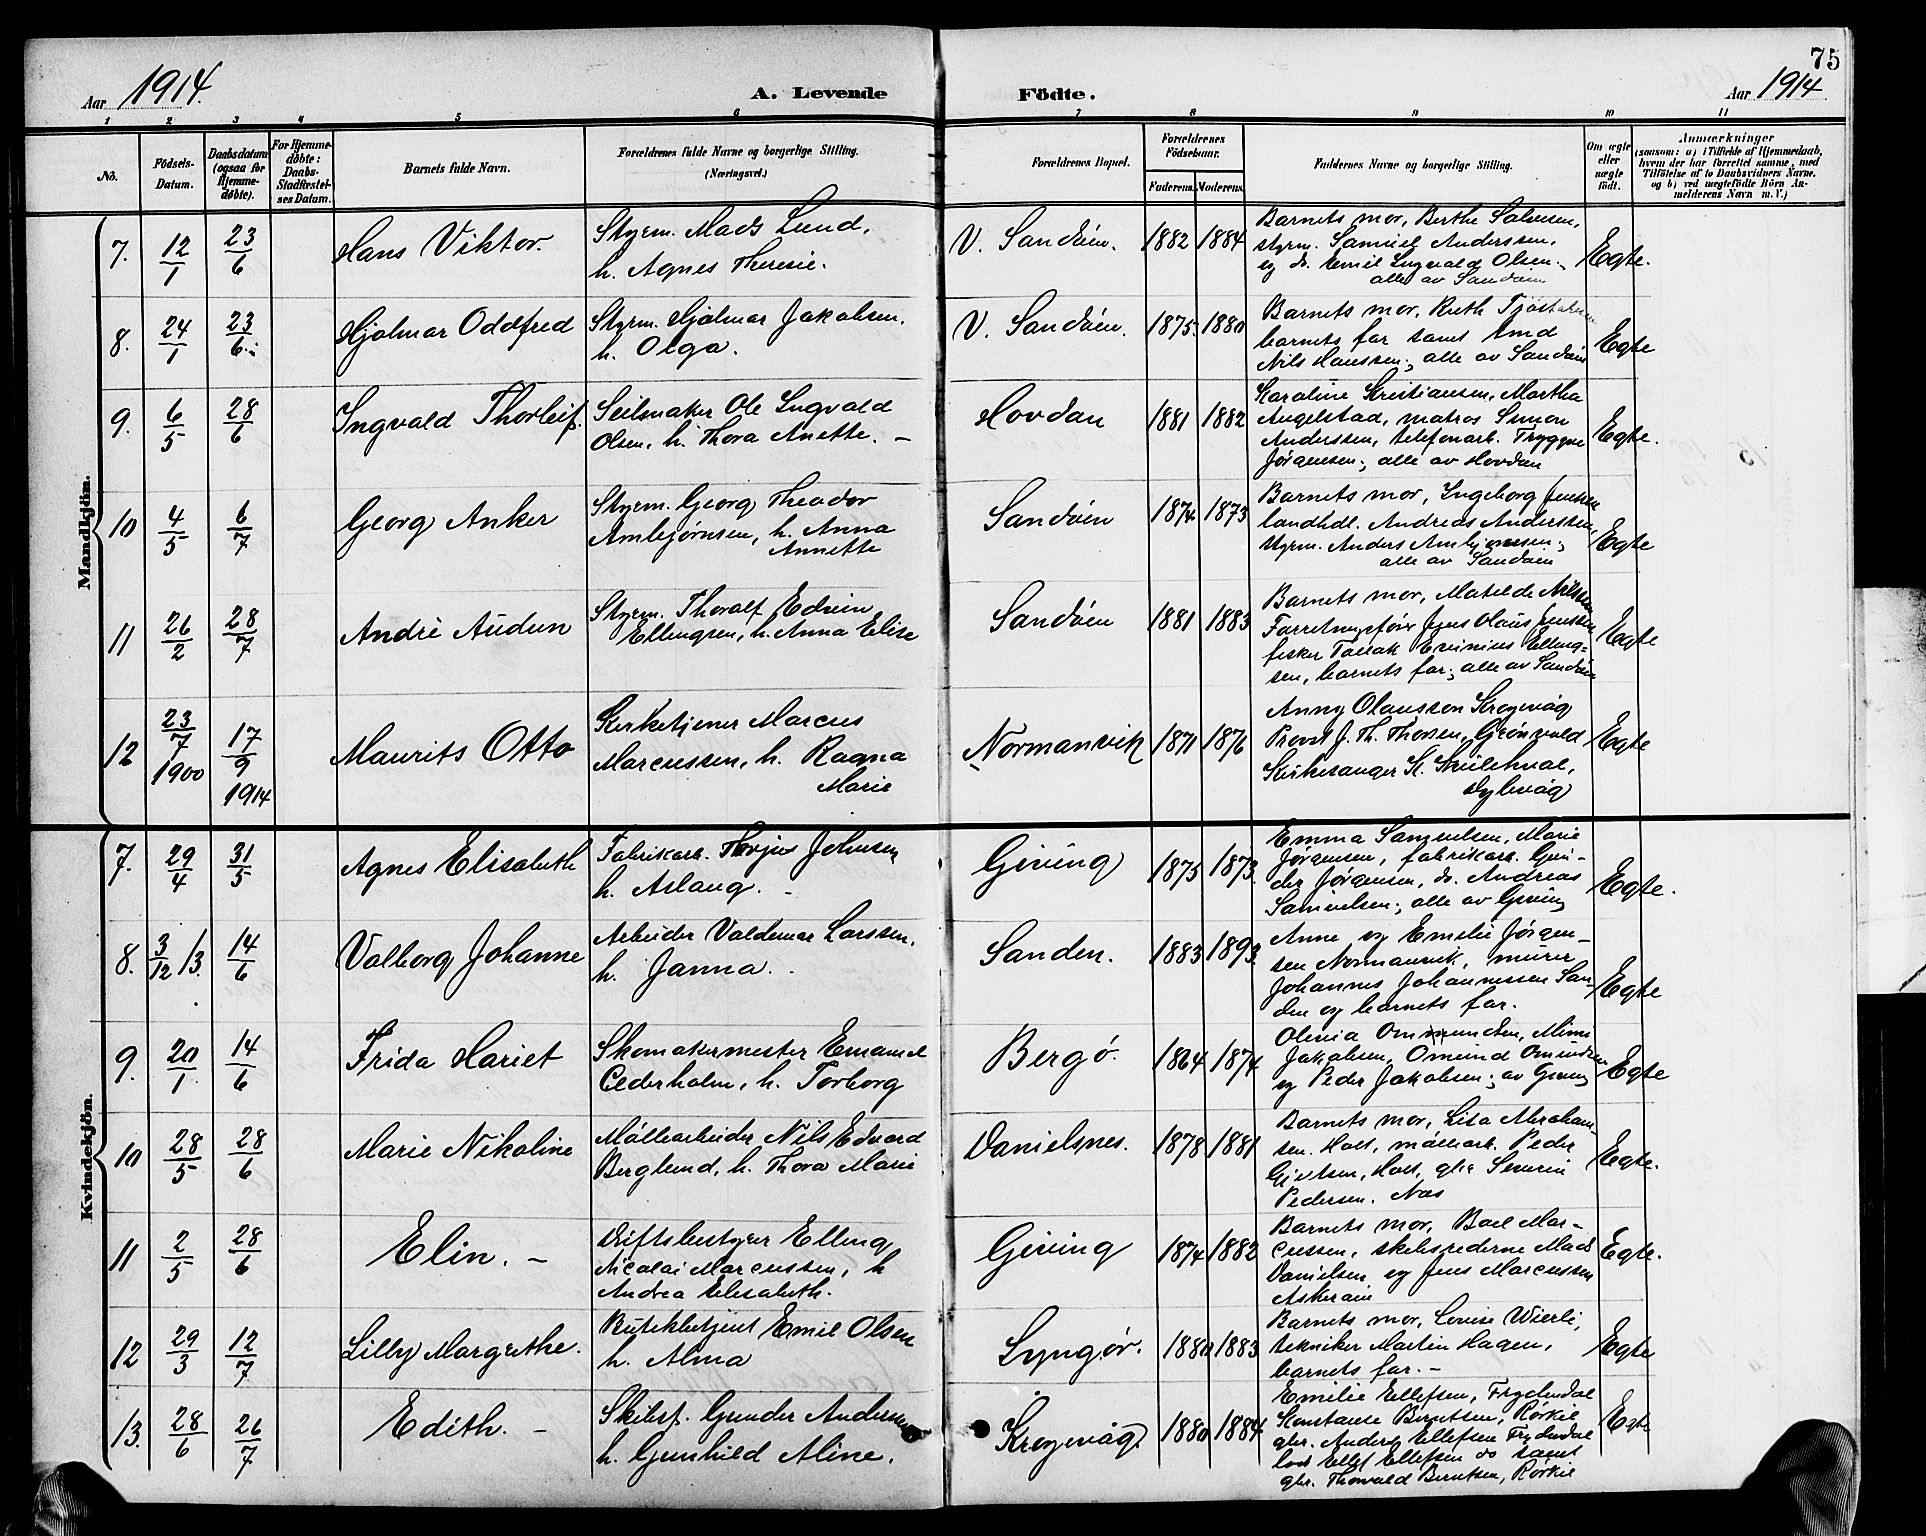 75
Aar 1914. A. Levende Födte. Aar 1914
1 2 3 4 5 6 7 8 9 10 11
No.
Födsels-Datum.
Daabsdatum (ogsaa for Hjemme-döbte).
For Hjemme-döbte: Daabs-Stadfæstel-ses Datum.
Barnets fulde Navn.
Forældrenes fulde Navne og borgerlige Stilling.
(Næringsvei.)
Forældrenes Bopæl.
Forældrenes Födselsaar.
Faderens. Moderens.
Faddernes Navne og borgerlige Stilling.
Om ægte eller uægte födt.
Anmærkninger
(saasom: a) i Tilfælde af Hjemmedaab, hvem der har forrettet samme, med Tilföielse af to Daabsvidners Navne, og b) ved uegtefödte Börn An-melderens Navn m. V.)
Mandkjön.
7. 12/1 23/6 Hans Viktor. Styrm. Mads Lund, h. Agnes Theresie. V. Sandöen. 1882 1884 Barnets mor, Berthe Salvesen, styrm. Samuel Anderssen, og do. Emil Ingvald Olsen; alle av Sandöen Egte.
8. 24/1 23/6 Hjalmar Oddfred Styrm. Hjalmar Jakobsen, h. Olga. V. Sandöen. 1875. 1880 Barnets mor, Ruth barnets far samt Nils Hanssen; alle av Sandöen Egte
9. 6/5 28/6 Ingvald Thorleif. Seilmaker Ole Ingvald Olsen, h. Thora Anette. – Hovdan 1881 1882 Karoline Kristiansen, Martha Angelstad, matros Simon Anderssen, telefonarb. Tryggve Jørgensen; alle av Hovdan Egte.
10 4/5 6/7 Georg Anker Styrm. Georg Theodor Ambjørnsen, h. Anna Annette Sandöen 1874 1873 Barnets mor, Ingeborg Jenssen landhdl. Andreas Anderssen, styrm. Anders Ambjørnsen; alle av Sandöen Egte
11 26/2 28/7 Andrè Audun Styrm. Thoralf Edvin Ellengsen, h. Anna Elise Sandöen 1881 1883 Barnets mor, Matilde Nilssen Jens Olaus Jenssen fisker Ellengsen, barnets far; alle av Sandöen Egte
12 23/7 1900 17/9 1914 Maurits Otto Kirketjener Marcus Marcussen, h. Ragna Marie Normanvik 1871 1876 Anny Olaussen Krogevåg Provst J. Th. Thorsen, Grönvold Kirkesanger Dybvåg Egte
Kvindekjön.
7. 29/4 31/5 Agnes Elisabeth Fabrikarb. Johnsen h. Aslaug. – Giving 1875 1873. Emma Samuelsen, Marie Jørgensen, fabrikarb. Gun-der Jørgensen, do. Andreas Samuelsen; alle av Giving Egte.
8. 3/12 13. 14/6 Valborg Johanne Arbeider Valdemar Larssen, h. Janna. Sanden. 1883 1893. Anne og Emelie Jørgen-sen Normanvik, murer Johannes Johannessen San-den og barnets far. Egte
9. 20/1 14/6 Frida Hariet Skomakermester Emanuel Cederholm, h. Torborg Bergö. 1864 1874 Olevia Ommundsen, Mimi Jakobsen, Omund Omundsen og Peder Jakobsen; av Giving Egte
10 28/5 28/6 Marie Nikoline Møllearbeider Nils Edvard Berglund, h. Thora Marie Danielsnes. 1878 1881 Barnets mor, Lisa Abraham-sen. Holt, møllearb. Peder Holt, gbr Severin Pedersen. Næs Egte.
11 2/5 28/6 Elin. – Driftsbestyrer Elling Nicolai Marcussen, h Andrea Elisabeth. Giving 1874 1882 Barnets mor, Boel Mar-cussen, skibsrederne Mads Danielsen og Jens Marcussen Askeröen Egte.
12 29/3 12/7 Lilly Margrethe. Butikbetjent Emil Olsen h. Alma Lyngör. 1880 1883 Barnets mor, Louise Wierli, tekniker Martin Hagen, barnets far. – Egte
13. 28/6 26/7 Edith. – Skibsf. Gunder Andersen h. Gunhild Aline. Krogevåg. 1880 1884 Emilie Ellefsen, Frydendal Konstanse Berntsen, Rørkil gbr. Anders Ellefsen Frydendal lods Ellef Ellefsen do samt gbr. Thorvald Berntsen, Rørkil Egte